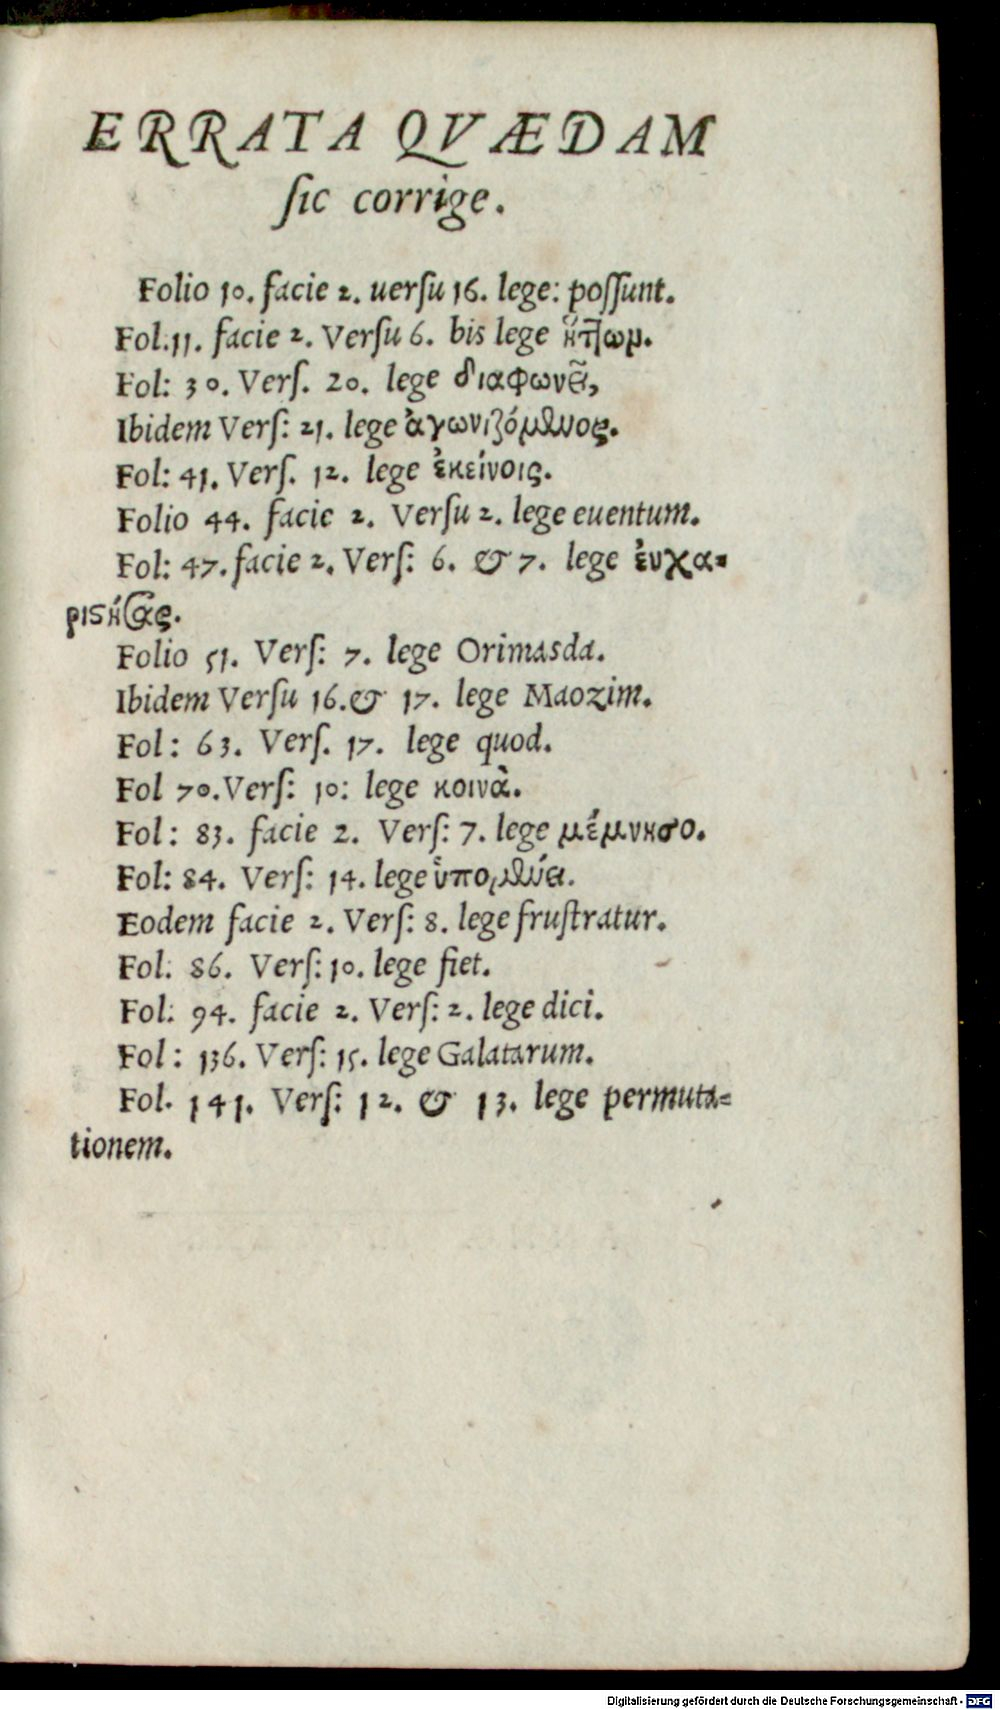 ERRATA QVÆDAM
ſic corrige.
Folio 10. facie 2. uerſu 16. lege: poſſunt.
Fol. 11. facie 2. Verſu 6. bis lege
Fol: 30. Verſ. 20. lege διαφωνεῖ,
Ibidem Verſ: 21. lege ἀγωνιζόμενος.
Fol: 41. Verſ. 12. lege ἐκείνοις.
Folio 44. facie 2. Verſu 2. lege euentum.
Fol: 47. facie 2. Verſ: 6. & 7. lege ἐυχα-
ριϛήσας.
Folio 51. Verſ: 7. lege Orimasda.
Ibidem Verſu 16. & 17. lege Maozim.
Fol: 63. Verſ. 17. lege quod.
Fol 70. Verſ: 10: lege κοινὰ.
Fol: 83. facie 2. Verſ: 7. lege μέμνησο.
Fol: 84. Verſ: 14. lege ὑπομένει.
Eodem facie 2. Verſ: 8. lege fruſtratur.
Fol: 86. Verſ: 10. lege fiet.
Fol: 94. facie 2. Verſ: 2. lege dici.
Fol: 136. Verſ: 15. lege Galatarum.
Fol. 141. Verſ: 12. & 13. lege permuta-
tionem.
Digitalisierung gefördert durch die Deutsche Forschungsgemeinschaft - DFG